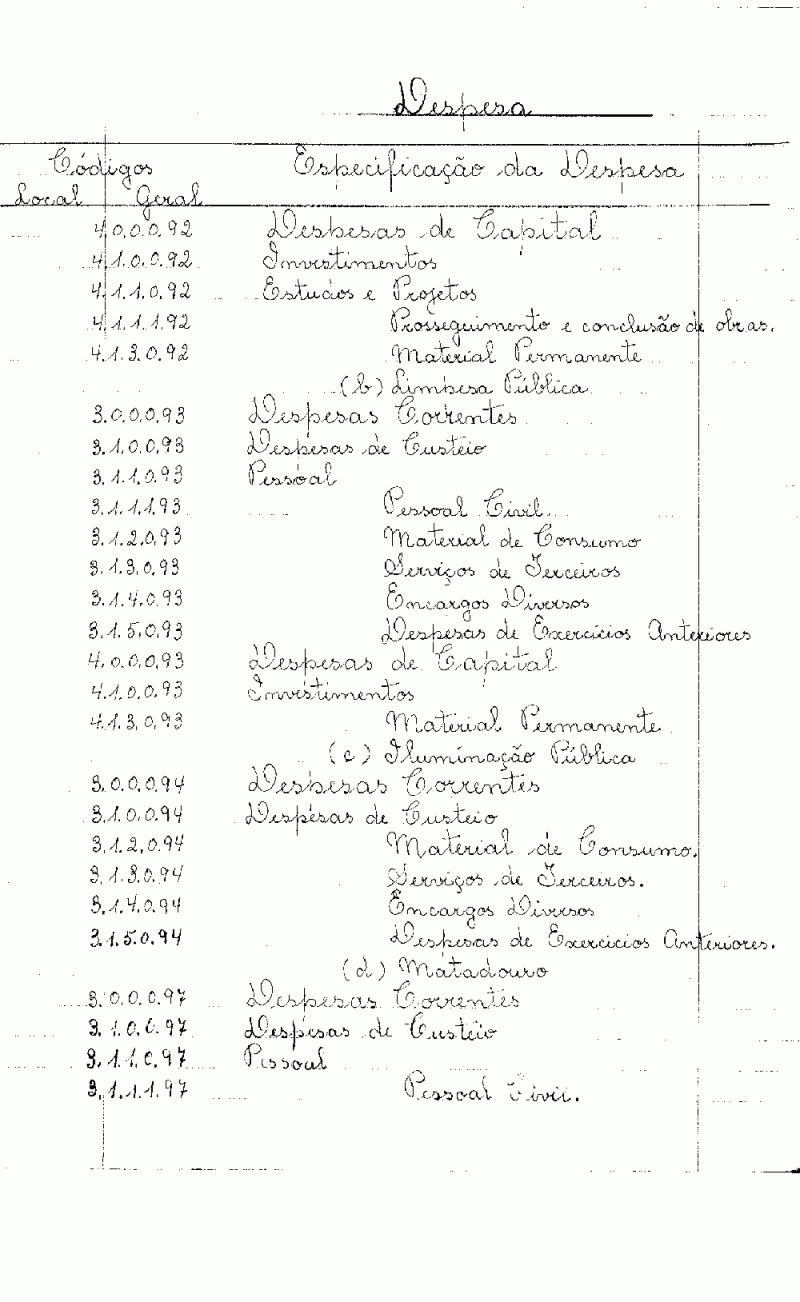 Despesa
Códigos Especificação da Despesa
Local Geral
4.0.0.0.92 Despesas de Capital
4.1.0.0.92 Investimentos
4.1.1.0.92 Estudos e Projetos
4.1.1.1.92 Prosseguimento e conclusão de obras.
4.1.3.0.92 Material Permanente
(b) Limpesa Pública
3.0.0.0.93 Despesas Correntes
3.1.0.0.93 Despesas de Custeio
3.1.1.0.93 Pessoal
3.1.1.1.93 Pessoal Civil.
3.1.2.0.93 Material de Consumo
3.1.3.0.93 Serviços de Terceiros
3.1.4.0.93 Encargos Diversos
3.1.5.0.93 Despesas de Exercícios Anteriores
4.0.0.0.93 Despesas de Capital
4.1.0.0.93 Investimentos
4.1.3.0.93 Material Permanente
(c) Iluminação Pública
3.0.0.0.94 Despesas Correntes
3.1.0.0.94 Despesas de Custeio
3.1.2.0.94 Material de Consumo.
3.1.3.0.94 Serviços de Terceiros.
3.1.4.0.94 Encargos Diversos
3.1.5.0.94 Despesas de Exercícios Anteriores.
(d) Matadouro
3.0.0.0.97 Despesas Correntes
3.1.0.0.97 Despesas de Custeio
3.1.1.0.97 Pessoal
3.1.1.1.97 Pessoal Civil.